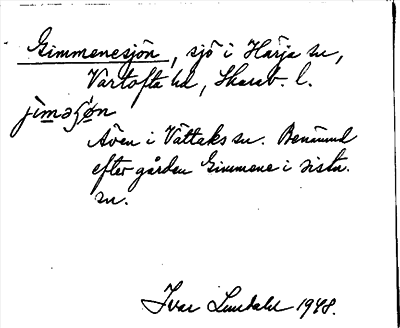 Gimmenesjön, sjö i Härja sn,
Vartofta hd, Skarab. l.
jiməʃøn
Även i Vättaks sn. Benämnd
efter gården Gimmene i sistn.
sn.
Ivar Lundahl 1948.